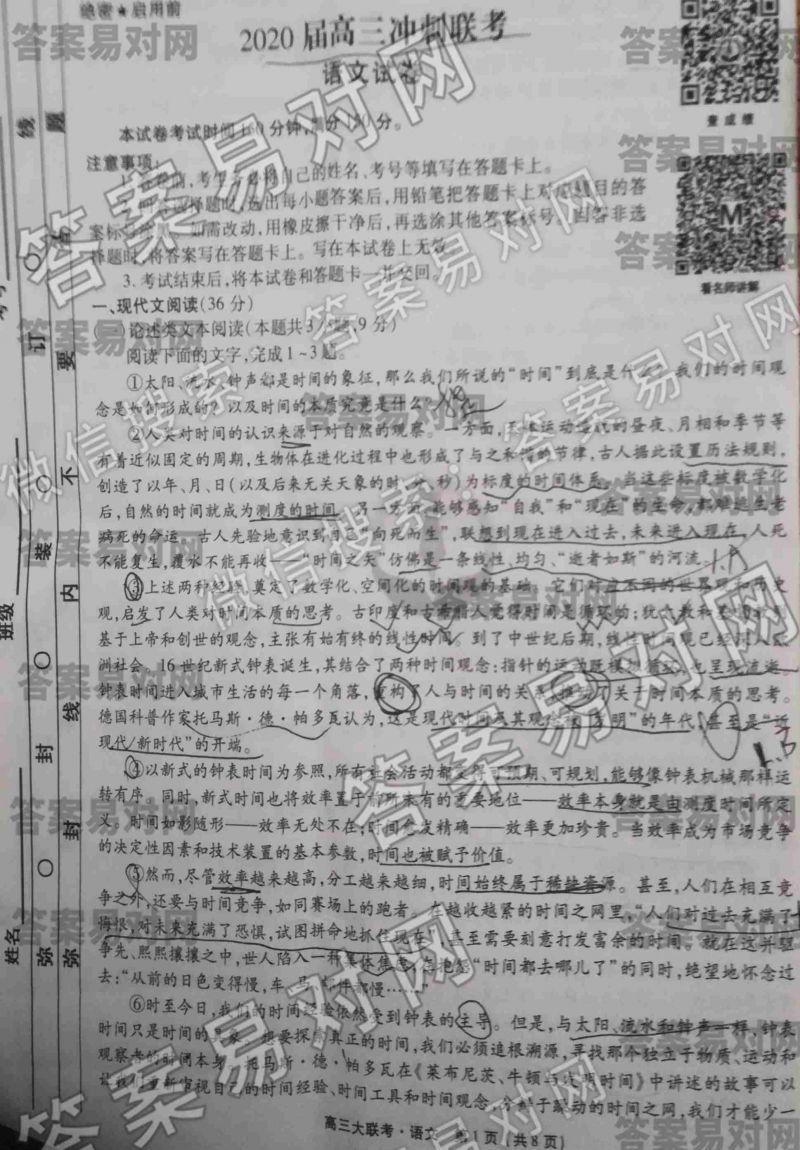 绝密★启用前
2020届高三冲刺联考
语文试卷
查成绩
看名师讲解
本试卷考试时间150分钟,满分150分。
注意事项:
自己的姓名、考号等填写在答题卡上。
选出每小题答案后,用铅笔把答题卡上对应题目的答
案标号 如需改动,用橡皮擦干净后,再选涂其他答案标号。回答非选
择题时,将答案写在答题卡上。写在本试卷上无效。
3.考试结束后,将本试卷和答题卡一并交回。
一、现代文阅读(36分)
(一)论述类文本阅读(本题共3小题,9分)
阅读下面的文字,完成1~3题。
①太阳、流水、钟声都是时间的象征,那么我们所说的“时间”到底是什么?我们的时间观
念是如何形成的?以及时间的本质究竟是什么?
②人类对时间的认识来源于对自然的观察。一方面,天体运动造成的昼夜、月相和季节等
有着近似固定的周期,生物体在进化过程中也形成了与之和谐的节律,古人据此设置历法规则,
创造了以年、月、日(以及后来无关天象的时、分、秒)为标度的时间体系。当这些标度被数学化
后,自然的时间就成为测度的时间。另一方面,能够感知“自我”和“现在”的生命,都难逃生老
病死的命运。古人先验地意识到自己“向死而生”,联想到现在进入过去,未来进入现在,人死
不能复生,覆水不能再收——“时间之矢”仿佛是一条线性、均匀、“逝者如斯”的河流。
③上述两种经验,奠定了数学化、空间化的时间观的基础。它们对应不同的世界观和历史
观,启发了人类对时间本质的思考。古印度和古希腊人觉得时间是循环的;犹太教和基督教则
基于上帝和创世的观念,主张有始有终的线性时间。到了中世纪后期,线性时间观已经引入欧
洲社会。16世纪新式钟表诞生,其结合了两种时间观念:指针的运动既模拟循环,也呈现流逝。
钟表时间进入城市生活的每一个角落,重构了人与时间的关系,推动了关于时间本质的思考。
德国科普作家托马斯·德·帕多瓦认为,这是现代时间及其观念被“发明”的年代,甚至是“近
现代/新时代”的开端。
④以新式的钟表时间为参照,所有社会活动都变得可预期、可规划,能够像钟表机械那样运
转有序。同时,新式时间也将效率置于前所未有的重要地位——效率本身就是由测度时间所定
义。时间如影随形——效率无处不在;时间愈发精确——效率更加珍贵。当效率成为市场竞争
的决定性因素和技术装置的基本参数,时间也被赋予价值。
⑤然而,尽管效率越来越高,分工越来越细,时间始终属于稀缺资源。甚至,人们在相互竞
争之外,还要与时间竞争,如同赛场上的跑者。在越收越紧的时间之网里,“人们对过去充满了
悔恨,对未来充满了恐惧,试图拼命地抓住现在”,甚至需要刻意打发富余的时间。就在这并驱
争先、熙熙攘攘之中,世人陷入一种集体焦虑,在抱怨“时间都去哪儿了”的同时,绝望地怀念过
去:“从前的日色变得慢,车、马、邮件都慢……”
⑥时至今日,我们的时间经验依然受到钟表的主导。但是,与太阳、流水和钟声一样,钟表
时间只是时间的具象。想要探究真正的时间,我们必须追根溯源,寻找那个独立于物质、运动和
观察者的时间本身。托马斯·德·帕多瓦在《莱布尼茨、牛顿与发明时间》中讲述的故事可以
让我们重新审视自己的时间经验、时间工具和时间观念,令 于 动的时间之网,我们才能少一
高三大联考·语文 第1页(共8页)
姓名
班级
弥 封 装 订 线
弥 封 线 内 不 要 答 题
答案易对网
微信搜索:答案易对网